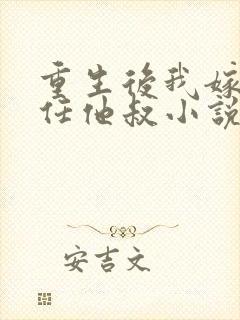 重生後我嫁
任他叔小說
安吉文